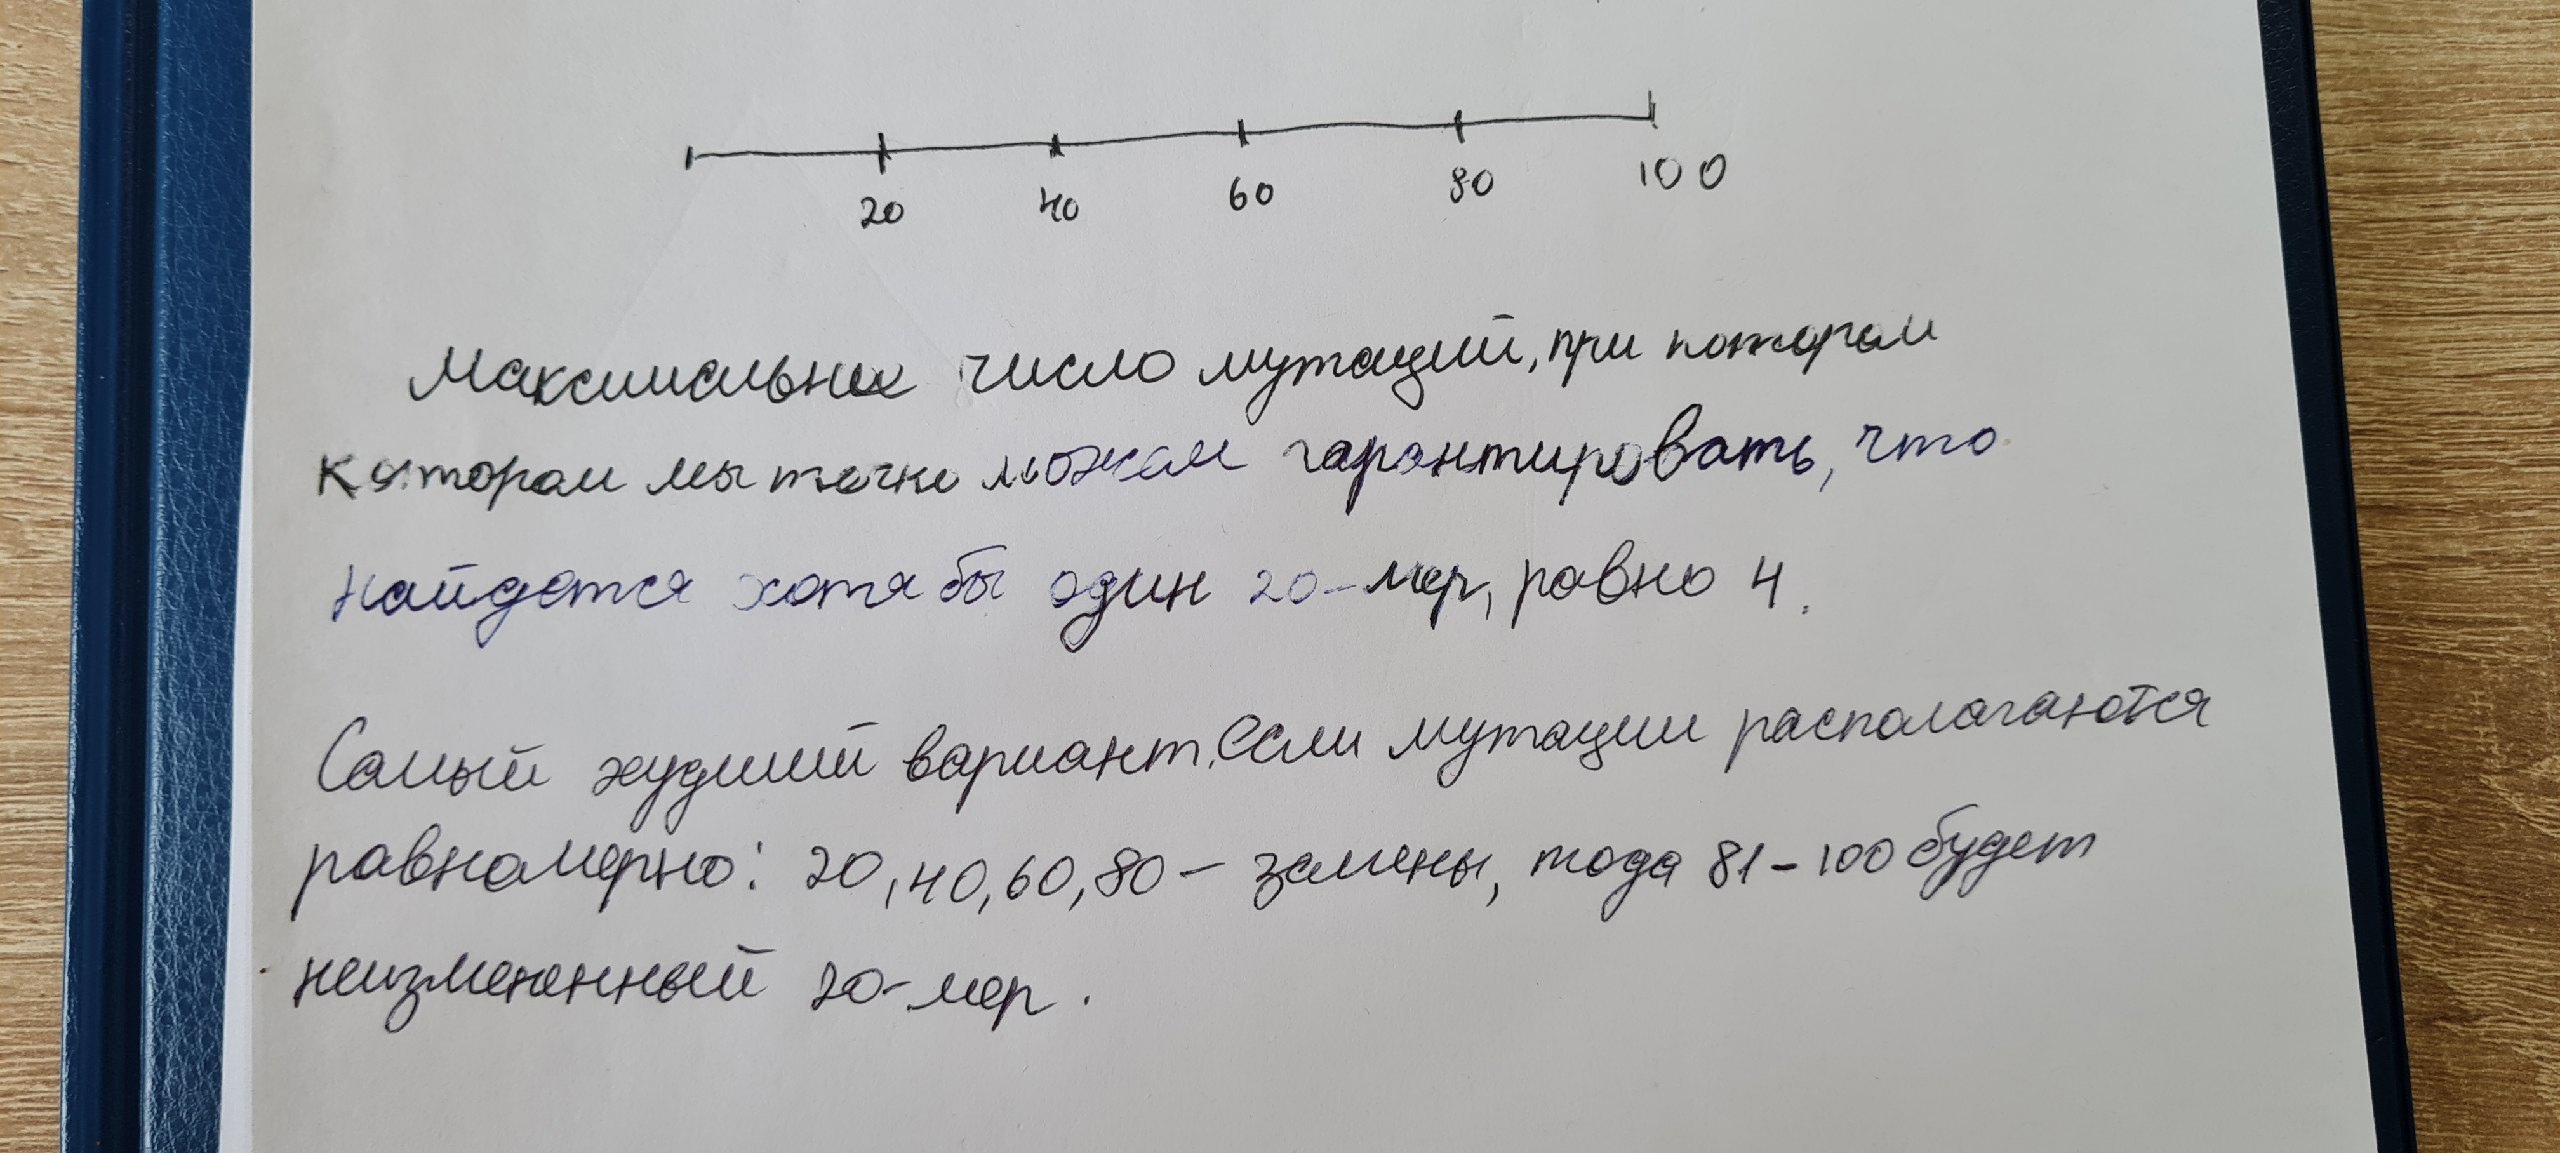 20 40 60 80 100
Максимальное число мутаций, при котором
котором мы точно можем гарантировать, что
найдется хотя бы один 20-мер, равно 4.
Самый худший вариант, если мутации располагаются
равномерно: 20, 40, 60, 80 - замены, тода 81-100 будет
неизмененный 20-мер.